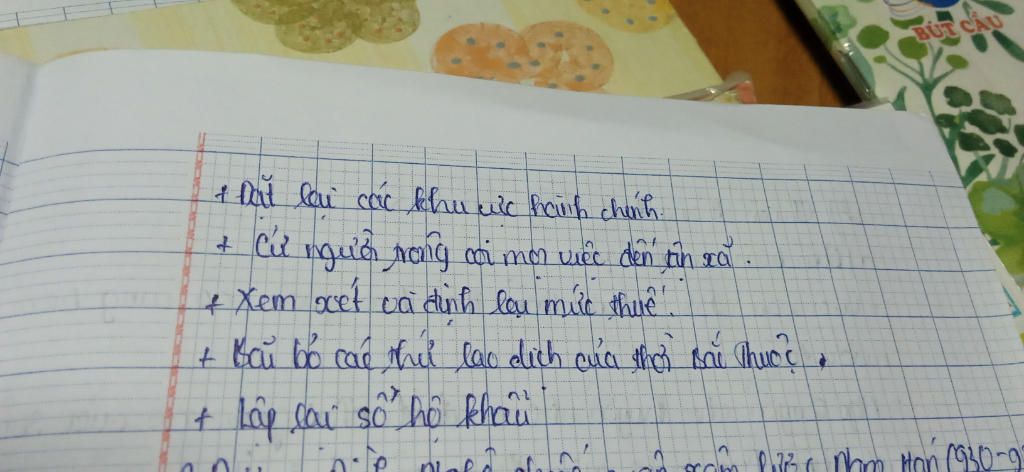 BÚT CẦU
+ Đặt lại các khu vực hành chính.
+ Cử người trông coi mọi việc đến tận xã.
+ Xem xét và định lại mức thuế.
+ Bãi bỏ các thứ lao dịch của thời Bắc thuộc.
+ Lập lại sổ hộ khẩu
Nam Hán (930-9